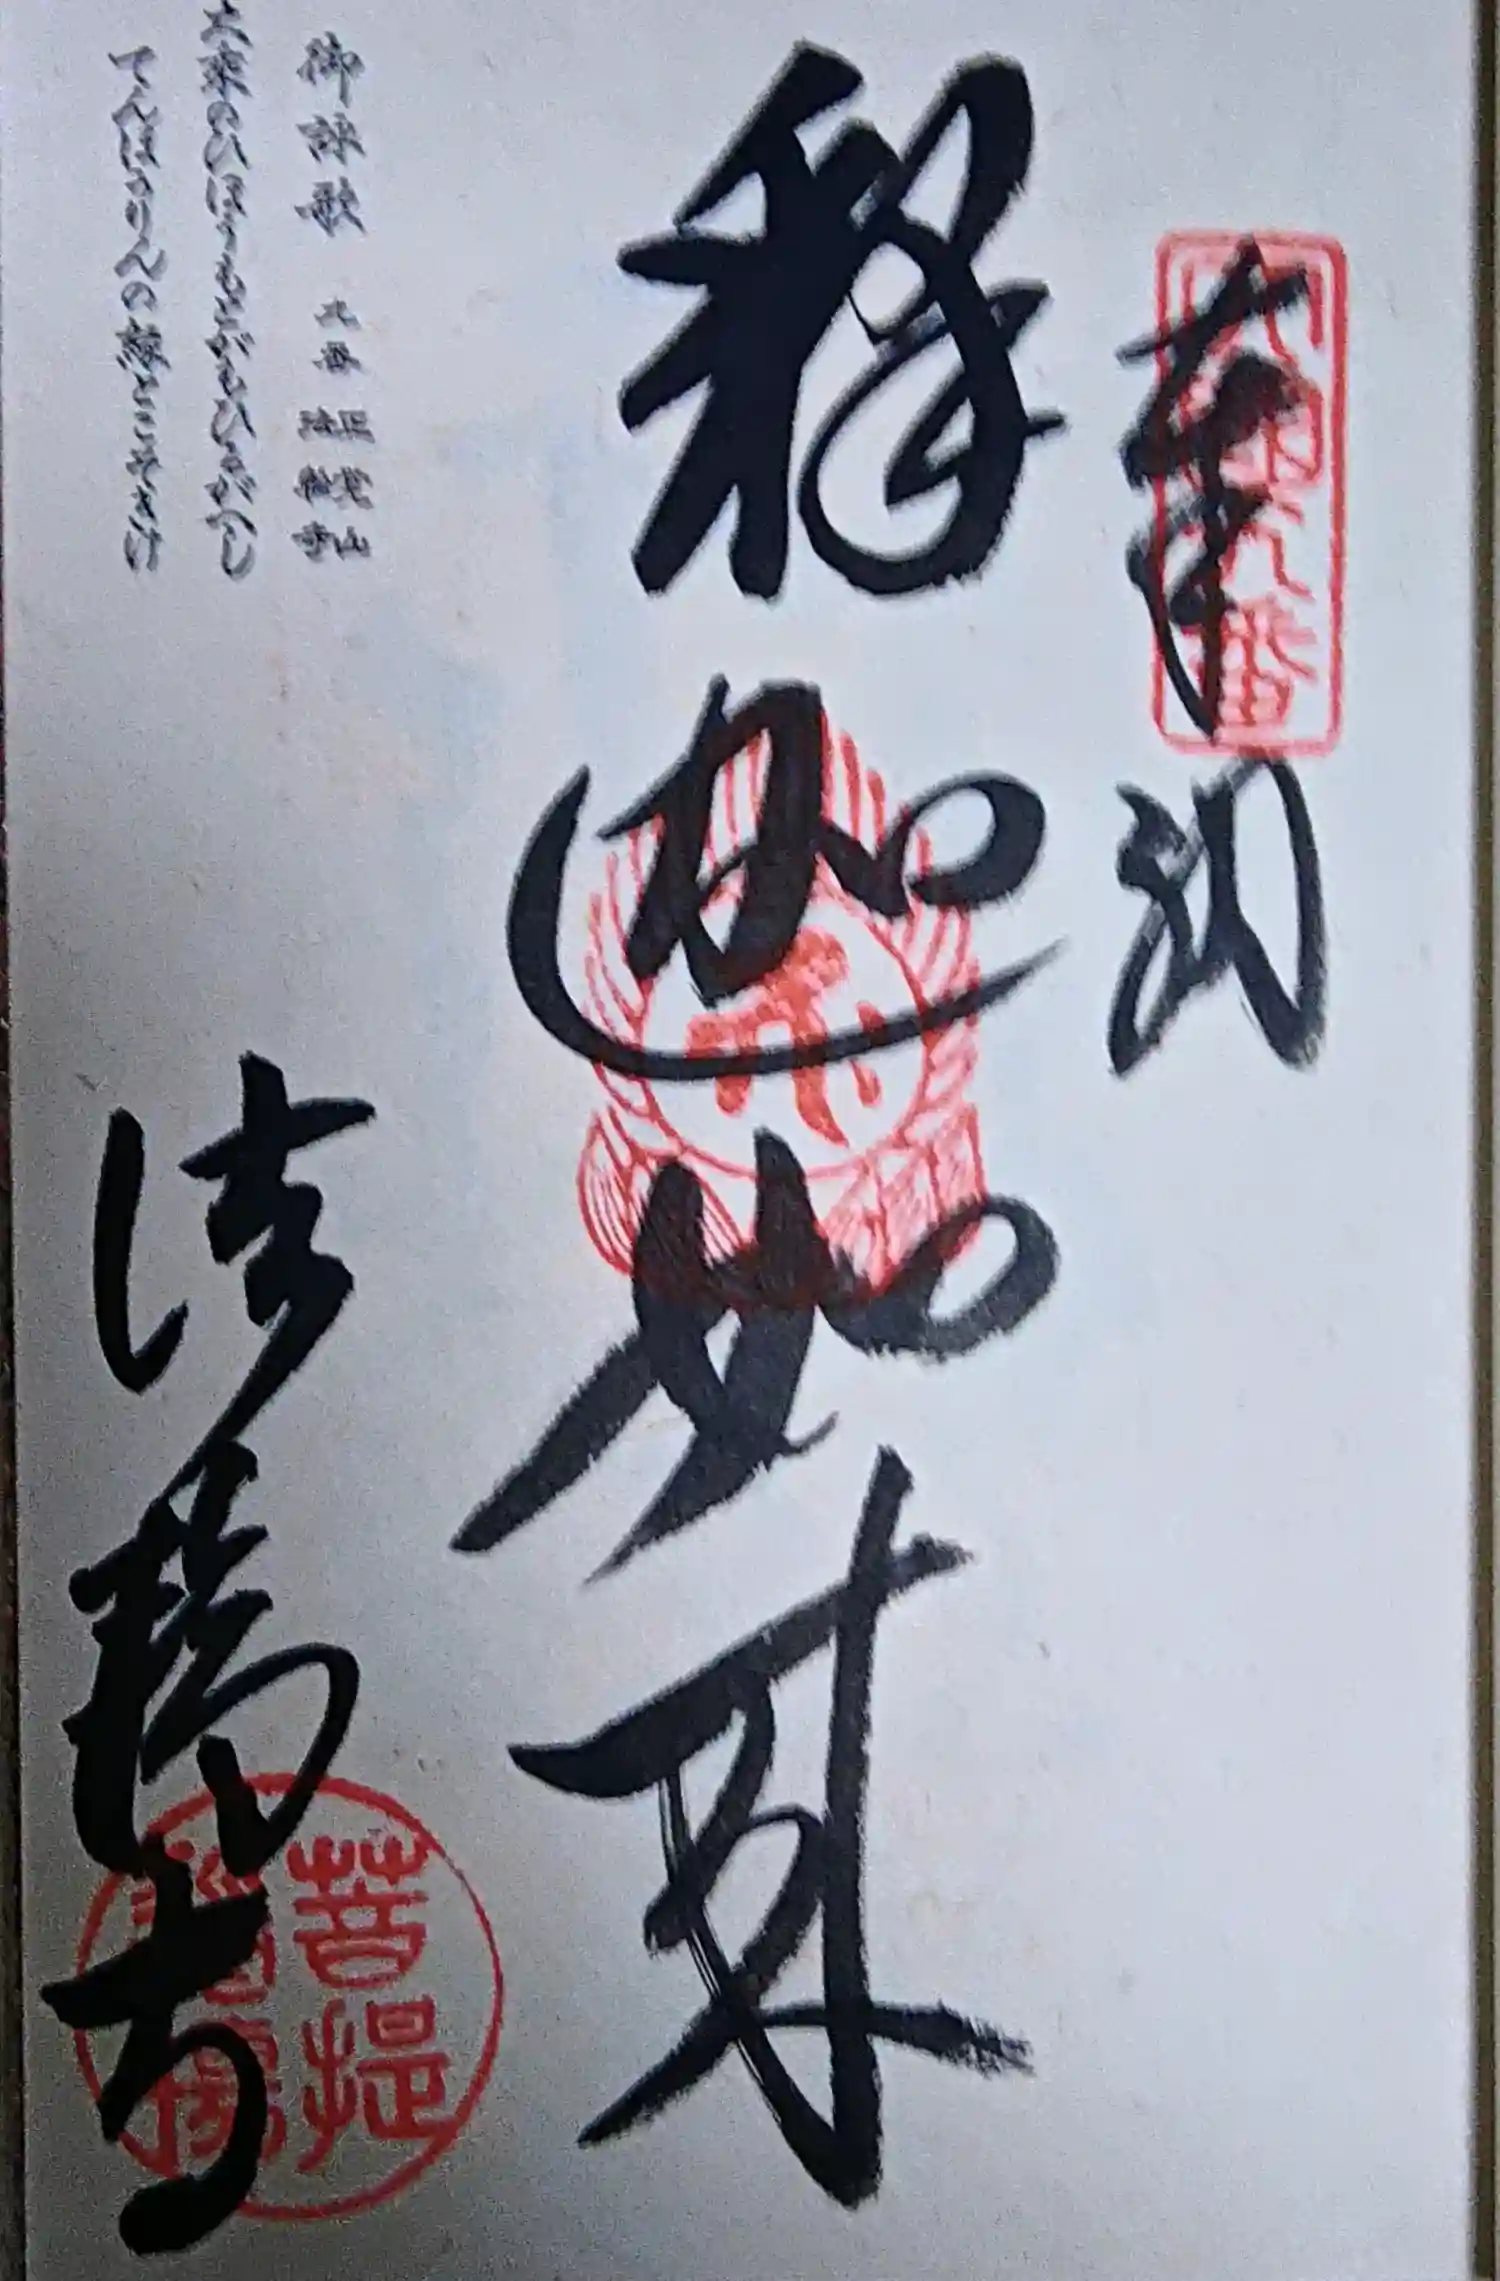 奉納
九番
釋迦如来
御詠歌 九番 正覚山 法輪寺
大乗のひほうもとがもひるがえし
てんぼうりんの縁とこそきけ
法輪寺
菩提